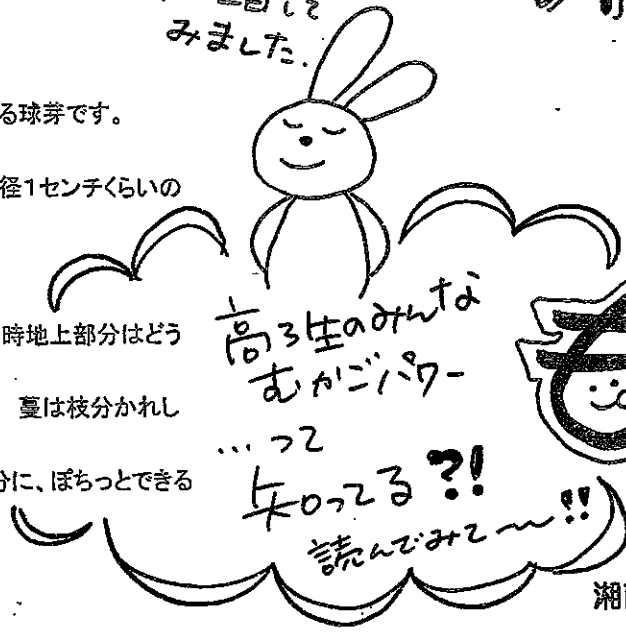 みました.
る球芽です。
径1センチくらいの
時地上部分はどう
蔓は枝分かれし
分に、ぽちっとできる
高3生のみんな
むかごパワー
…って
知ってる?!
読んでみて〜〜!!
湘